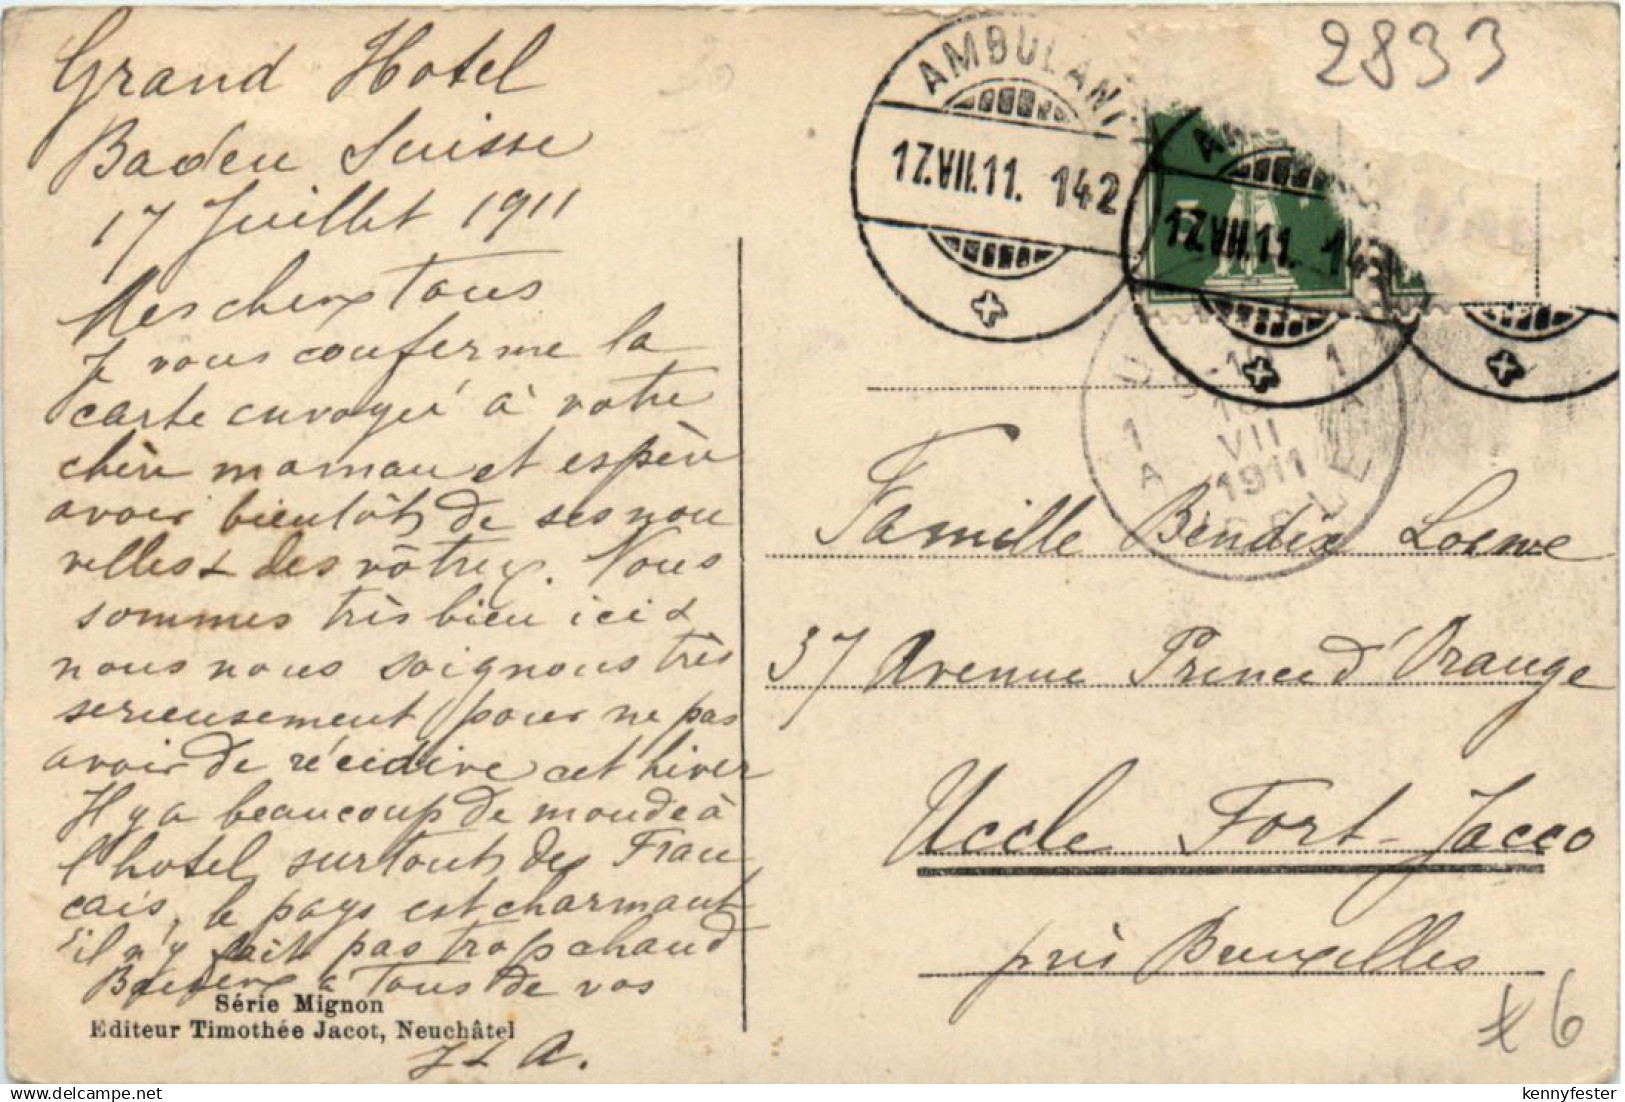 Grand Hotel
Baden Suisse
17 Juillet 1911
Mes chers Tous
Je vous conferme la
carte envoyée à votre
chère maman et espère
avoir bientôt de ses nou
velles & des vôtres. Nous
sommes très bien ici &
nous nous soignons très
serieusement pour ne pas
avoir de récidive cet hiver
Il y a beaucoup de monde à
l'hotel, surtout des Fran
cais, le pays est charmant
s'il n'y fait pas trop chaud
Baisers à Tous de vos
J & A.
Série Mignon
Editeur Timothée Jacot, Neuchâtel
2833
AMBULANT
17.VII.11. 142
17.VII.11. 14
1
A
VII
1911
UCCLE
1
A
Famille Bendix Loewe
37 Avenue Prince d'Orange
Uccle Fort-Jacco
près Bruxelles
6
kennyfester